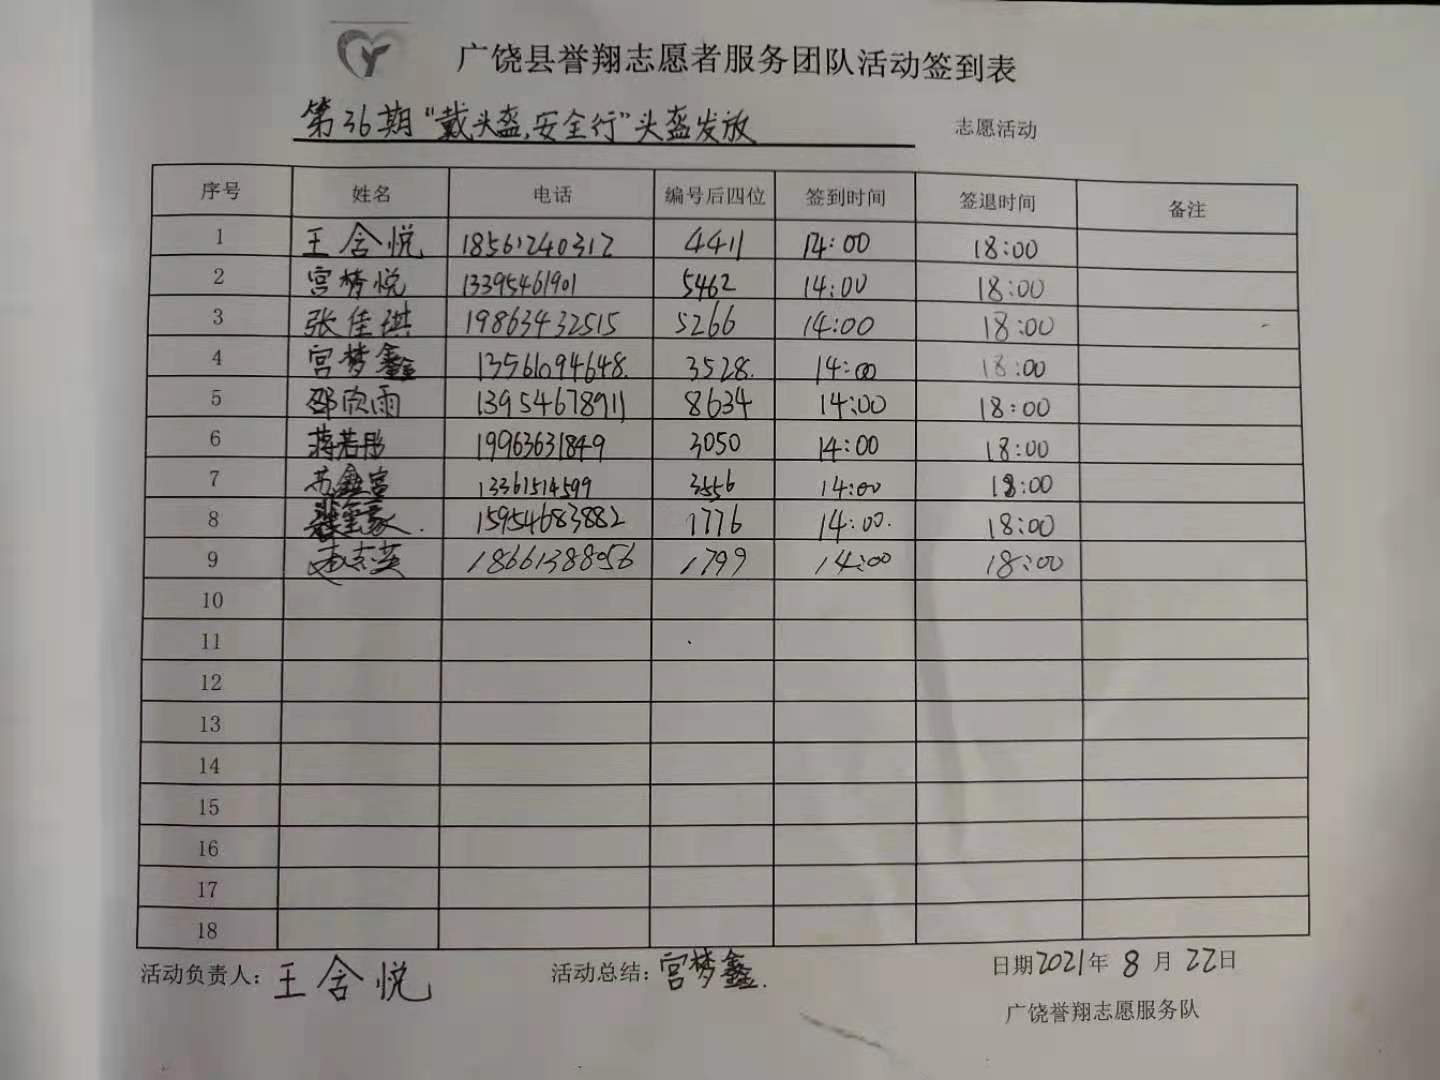 广饶县誉翔志愿者服务团队活动签到表
第36期"戴头盔,安全行"头盔发放 志愿活动
序号 姓名 电话 编号后四位 签到时间 签退时间 备注
1 王含悦 18561240312 4411 14:00 18:00
2 宫梦悦 13395461901 5462 14:00 18:00
3 张佳琪 19863432515 5266 14:00 18:00
4 宫梦鑫 13561094648. 3528. 14:00 18:00
5 邵欣雨 13954678911 8634 14:00 18:00
6 蒋若彤 19963631849 3050 14:00 18:00
7 苏鑫富 13361514599 3556 14:00 18:00
8 15954683882 1776 14:00. 18:00
9 18661388056 1799 14:00 18:00
10
11
12
13
14
15
16
17
18
活动负责人: 王含悦 活动总结: 宫梦鑫. 日期2021年8月22日
广饶誉翔志愿服务队